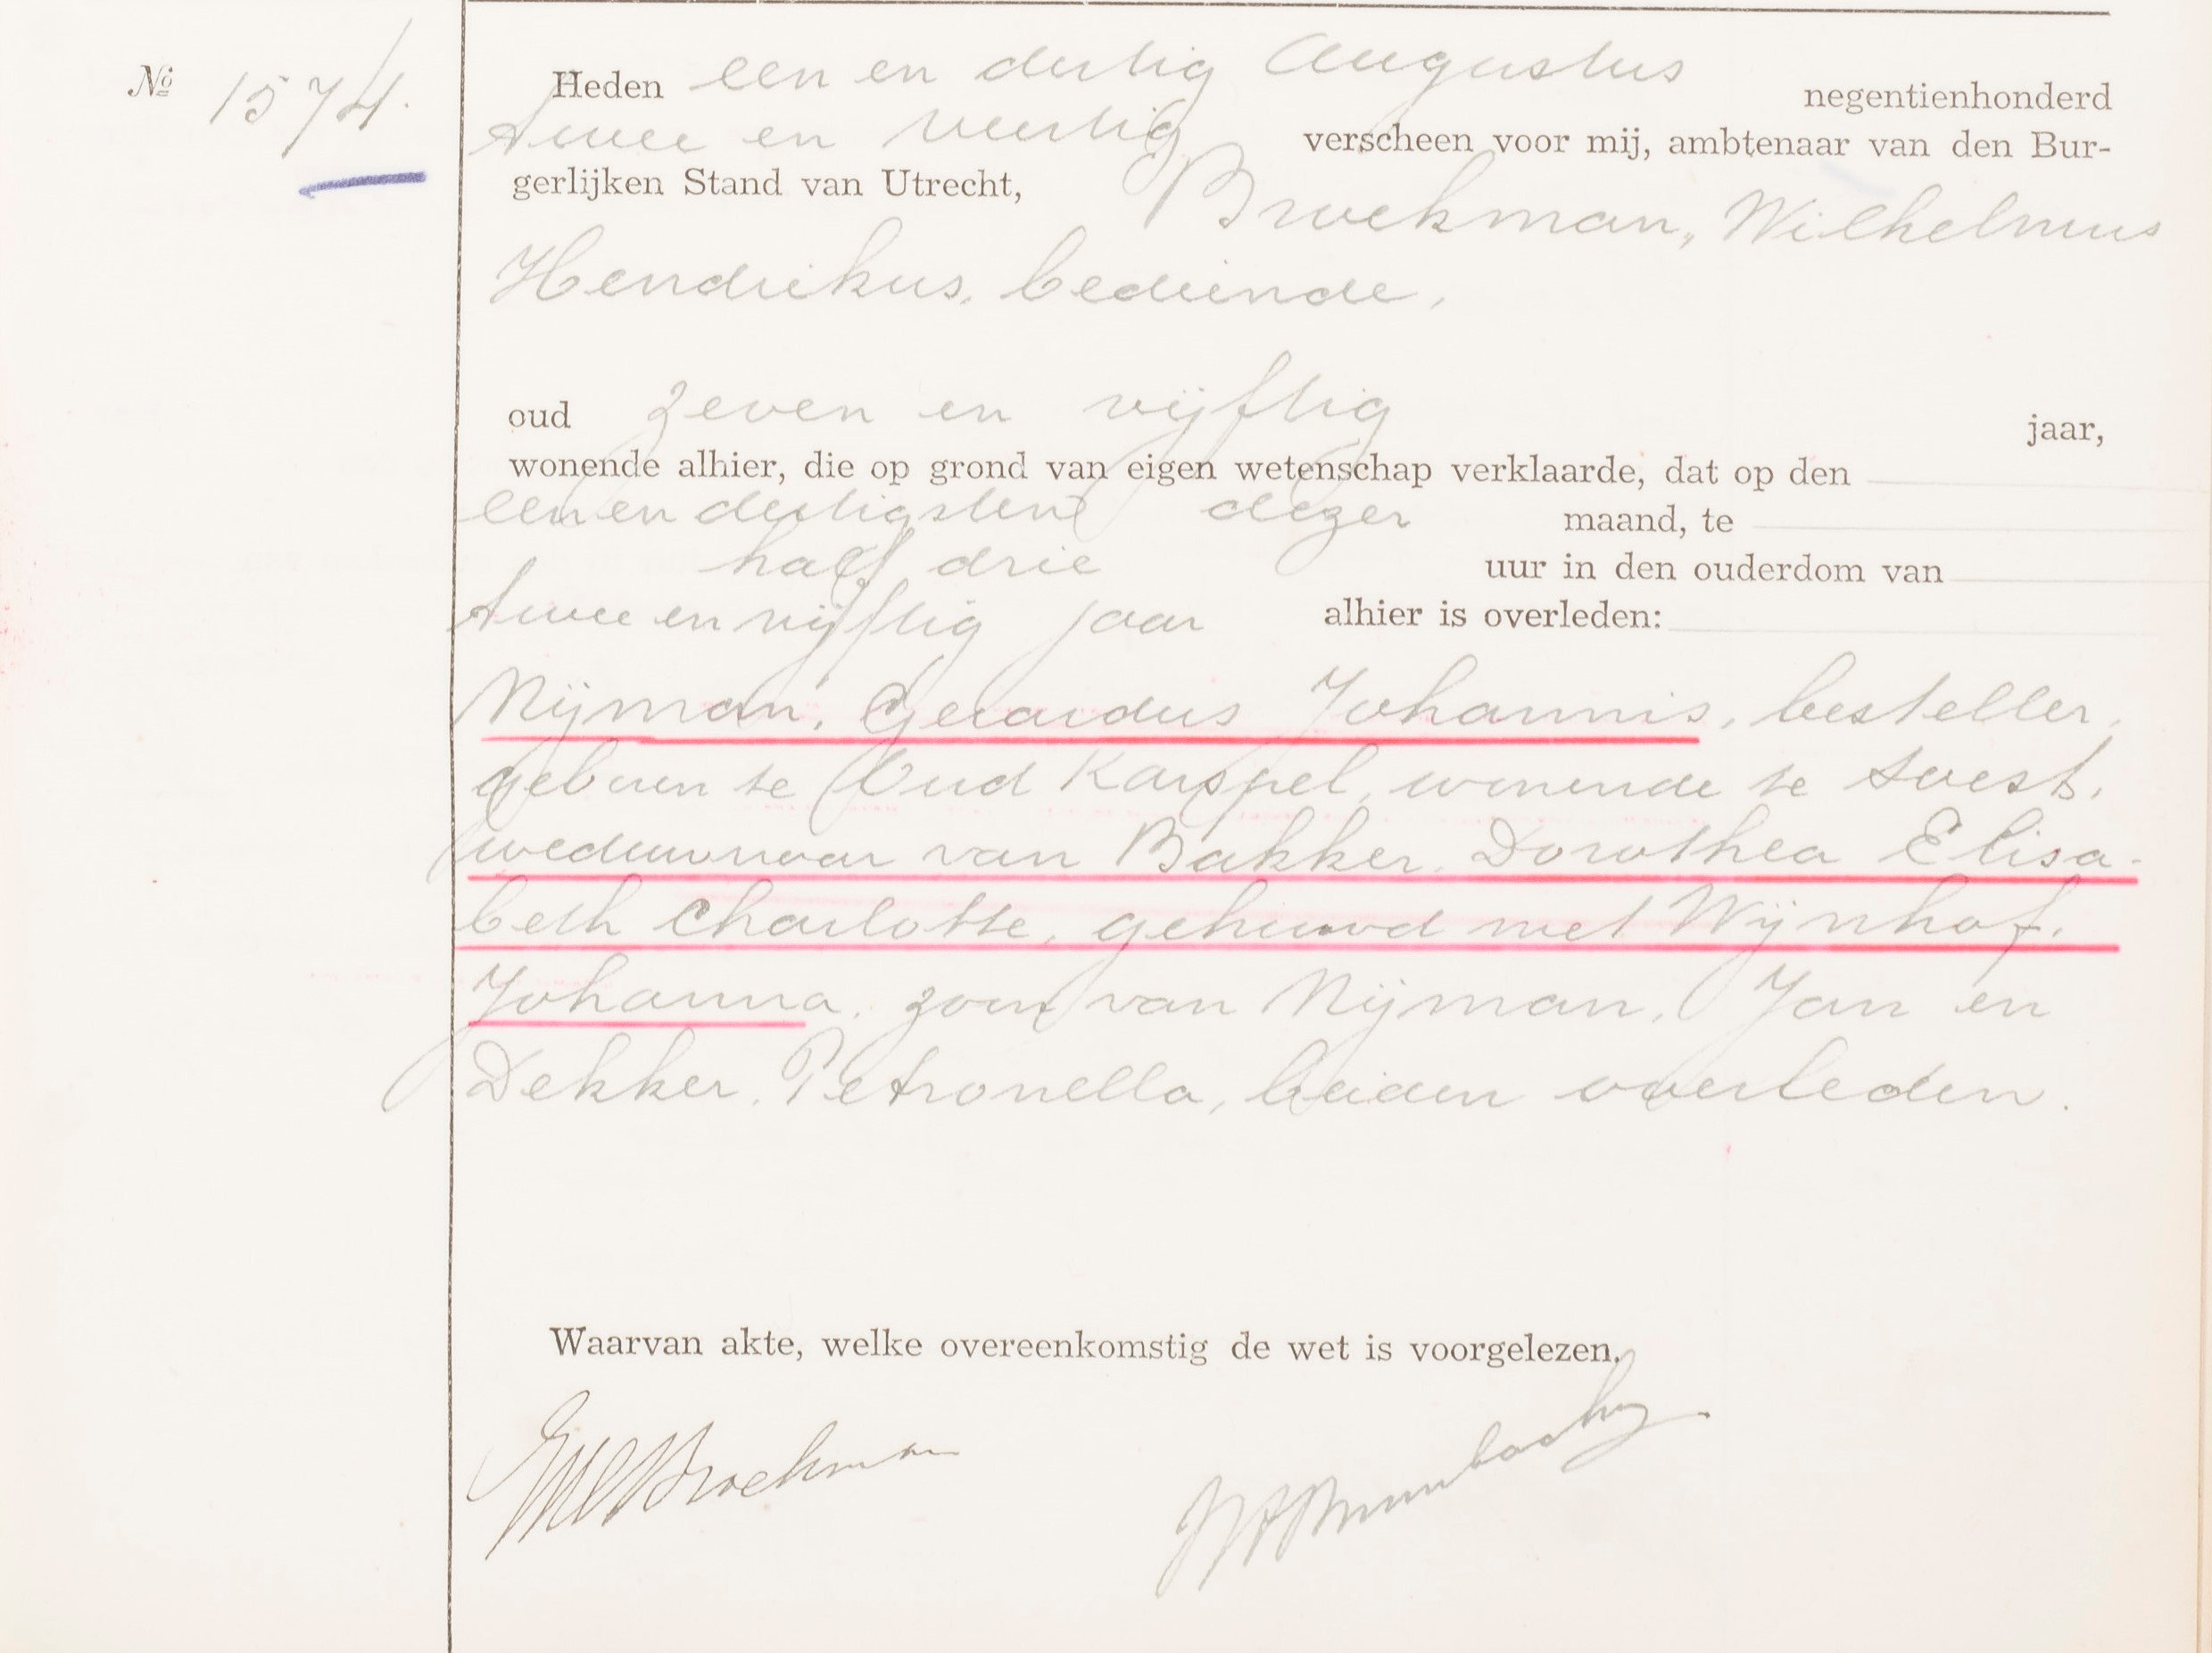 Nº 1574.
Heden een en dertig Augustus negentienhonderd
twee en veertig verscheen voor mij, ambtenaar van den Bur-
gerlijken Stand van Utrecht, Broekman, Wilhelmus
Hendrikus, bediende,
oud zeven en vijftig jaar,
wonende alhier, die op grond van eigen wetenschap verklaarde, dat op den
eenendertigsten dezer maand, te
half drie uur in den ouderdom van
twee en vijftig jaar alhier is overleden:
Nijman, Gerardus Johannis, besteller,
geboren te Oud Karspel, wonende te Soest,
weduwnaar van Bakker, Dorothea Elisa-
beth Charlotte, gehuwd met Wijnhof,
Johanna, zoon van Nijman, Jan en
Dekker, Petronella, beiden overleden.
Waarvan akte, welke overeenkomstig de wet is voorgelezen.
Broekman